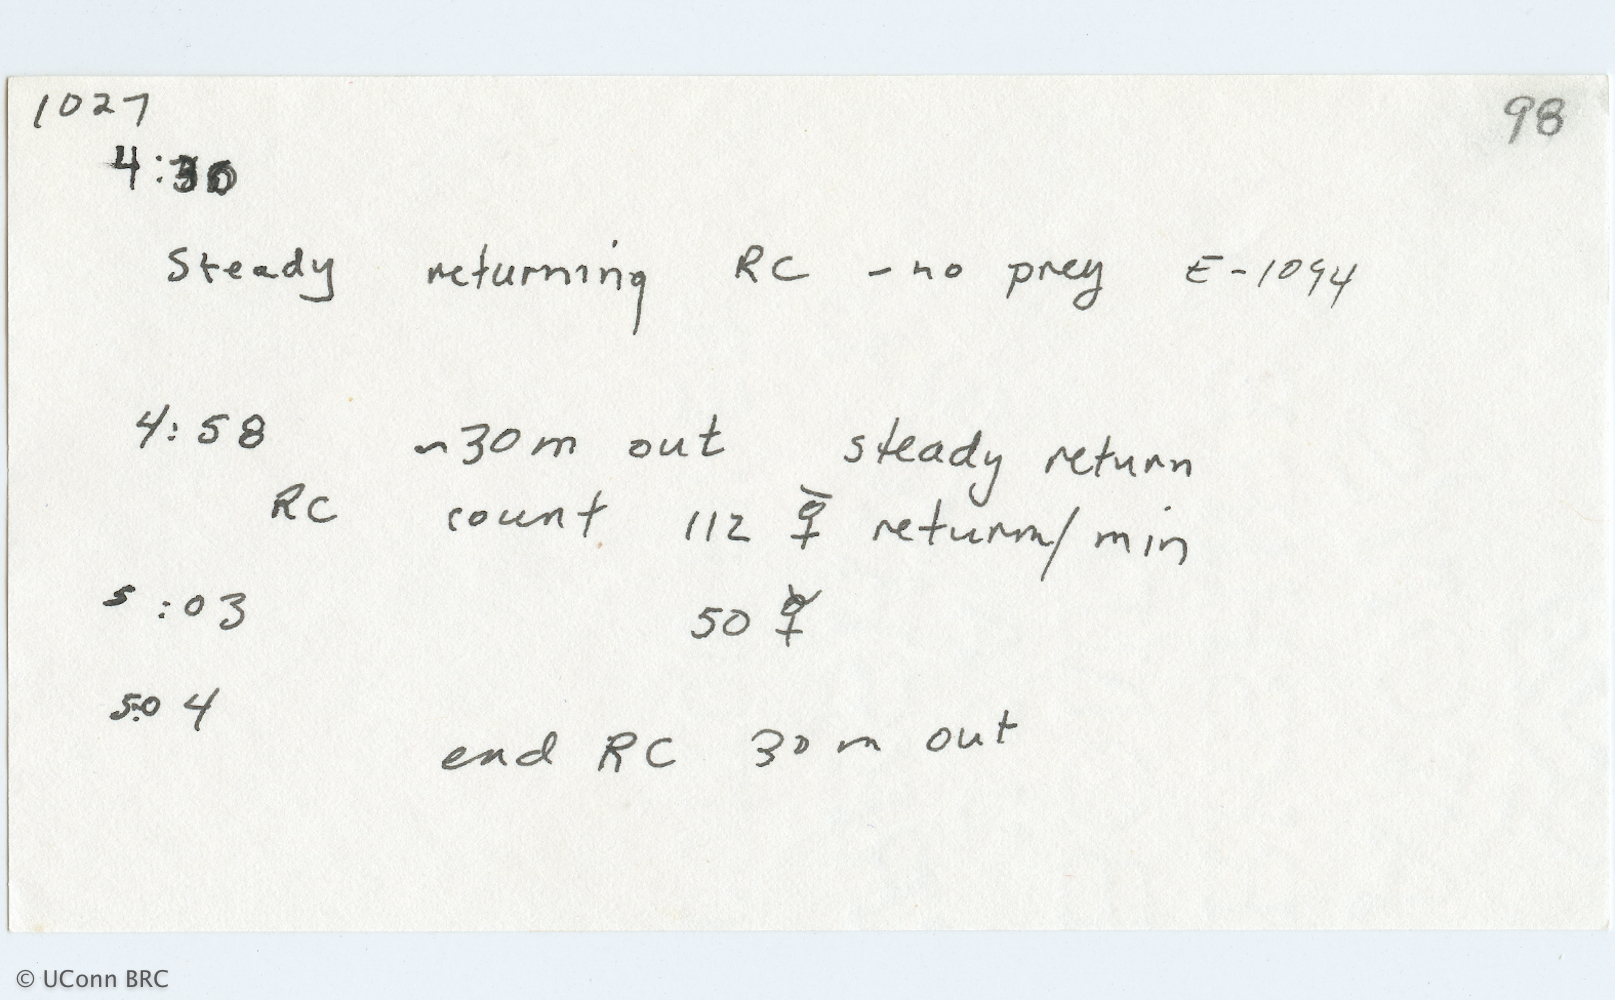 1027
98
4:30
Steady returning RC - no prey E-1094
4:58 ~30m out steady return
RC count 112 ☿ return/min
5:03 50 ☿
5:04
end RC 30m out
© UConn BRC